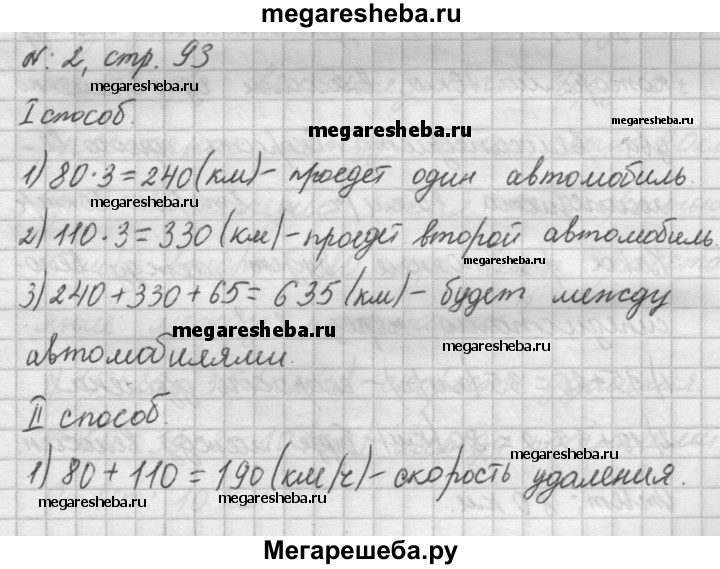 megaresheba.ru
№: 2, стр. 93
megaresheba.ru
I способ.
megaresheba.ru
megaresheba.ru
1) 80·3=240(км)- проедет один автомобиль.
megaresheba.ru
2) 110·3=330(км)-проедет второй автомобиль.
megaresheba.ru
3) 240+330+65=635(км)- будет между
megaresheba.ru
megaresheba.ru
автомобилями.
II способ.
megaresheba.ru
1) 80+110=190(км/ч)-скорость удаления.
megaresheba.ru
megaresheba.ru
Мегарешеба.ру